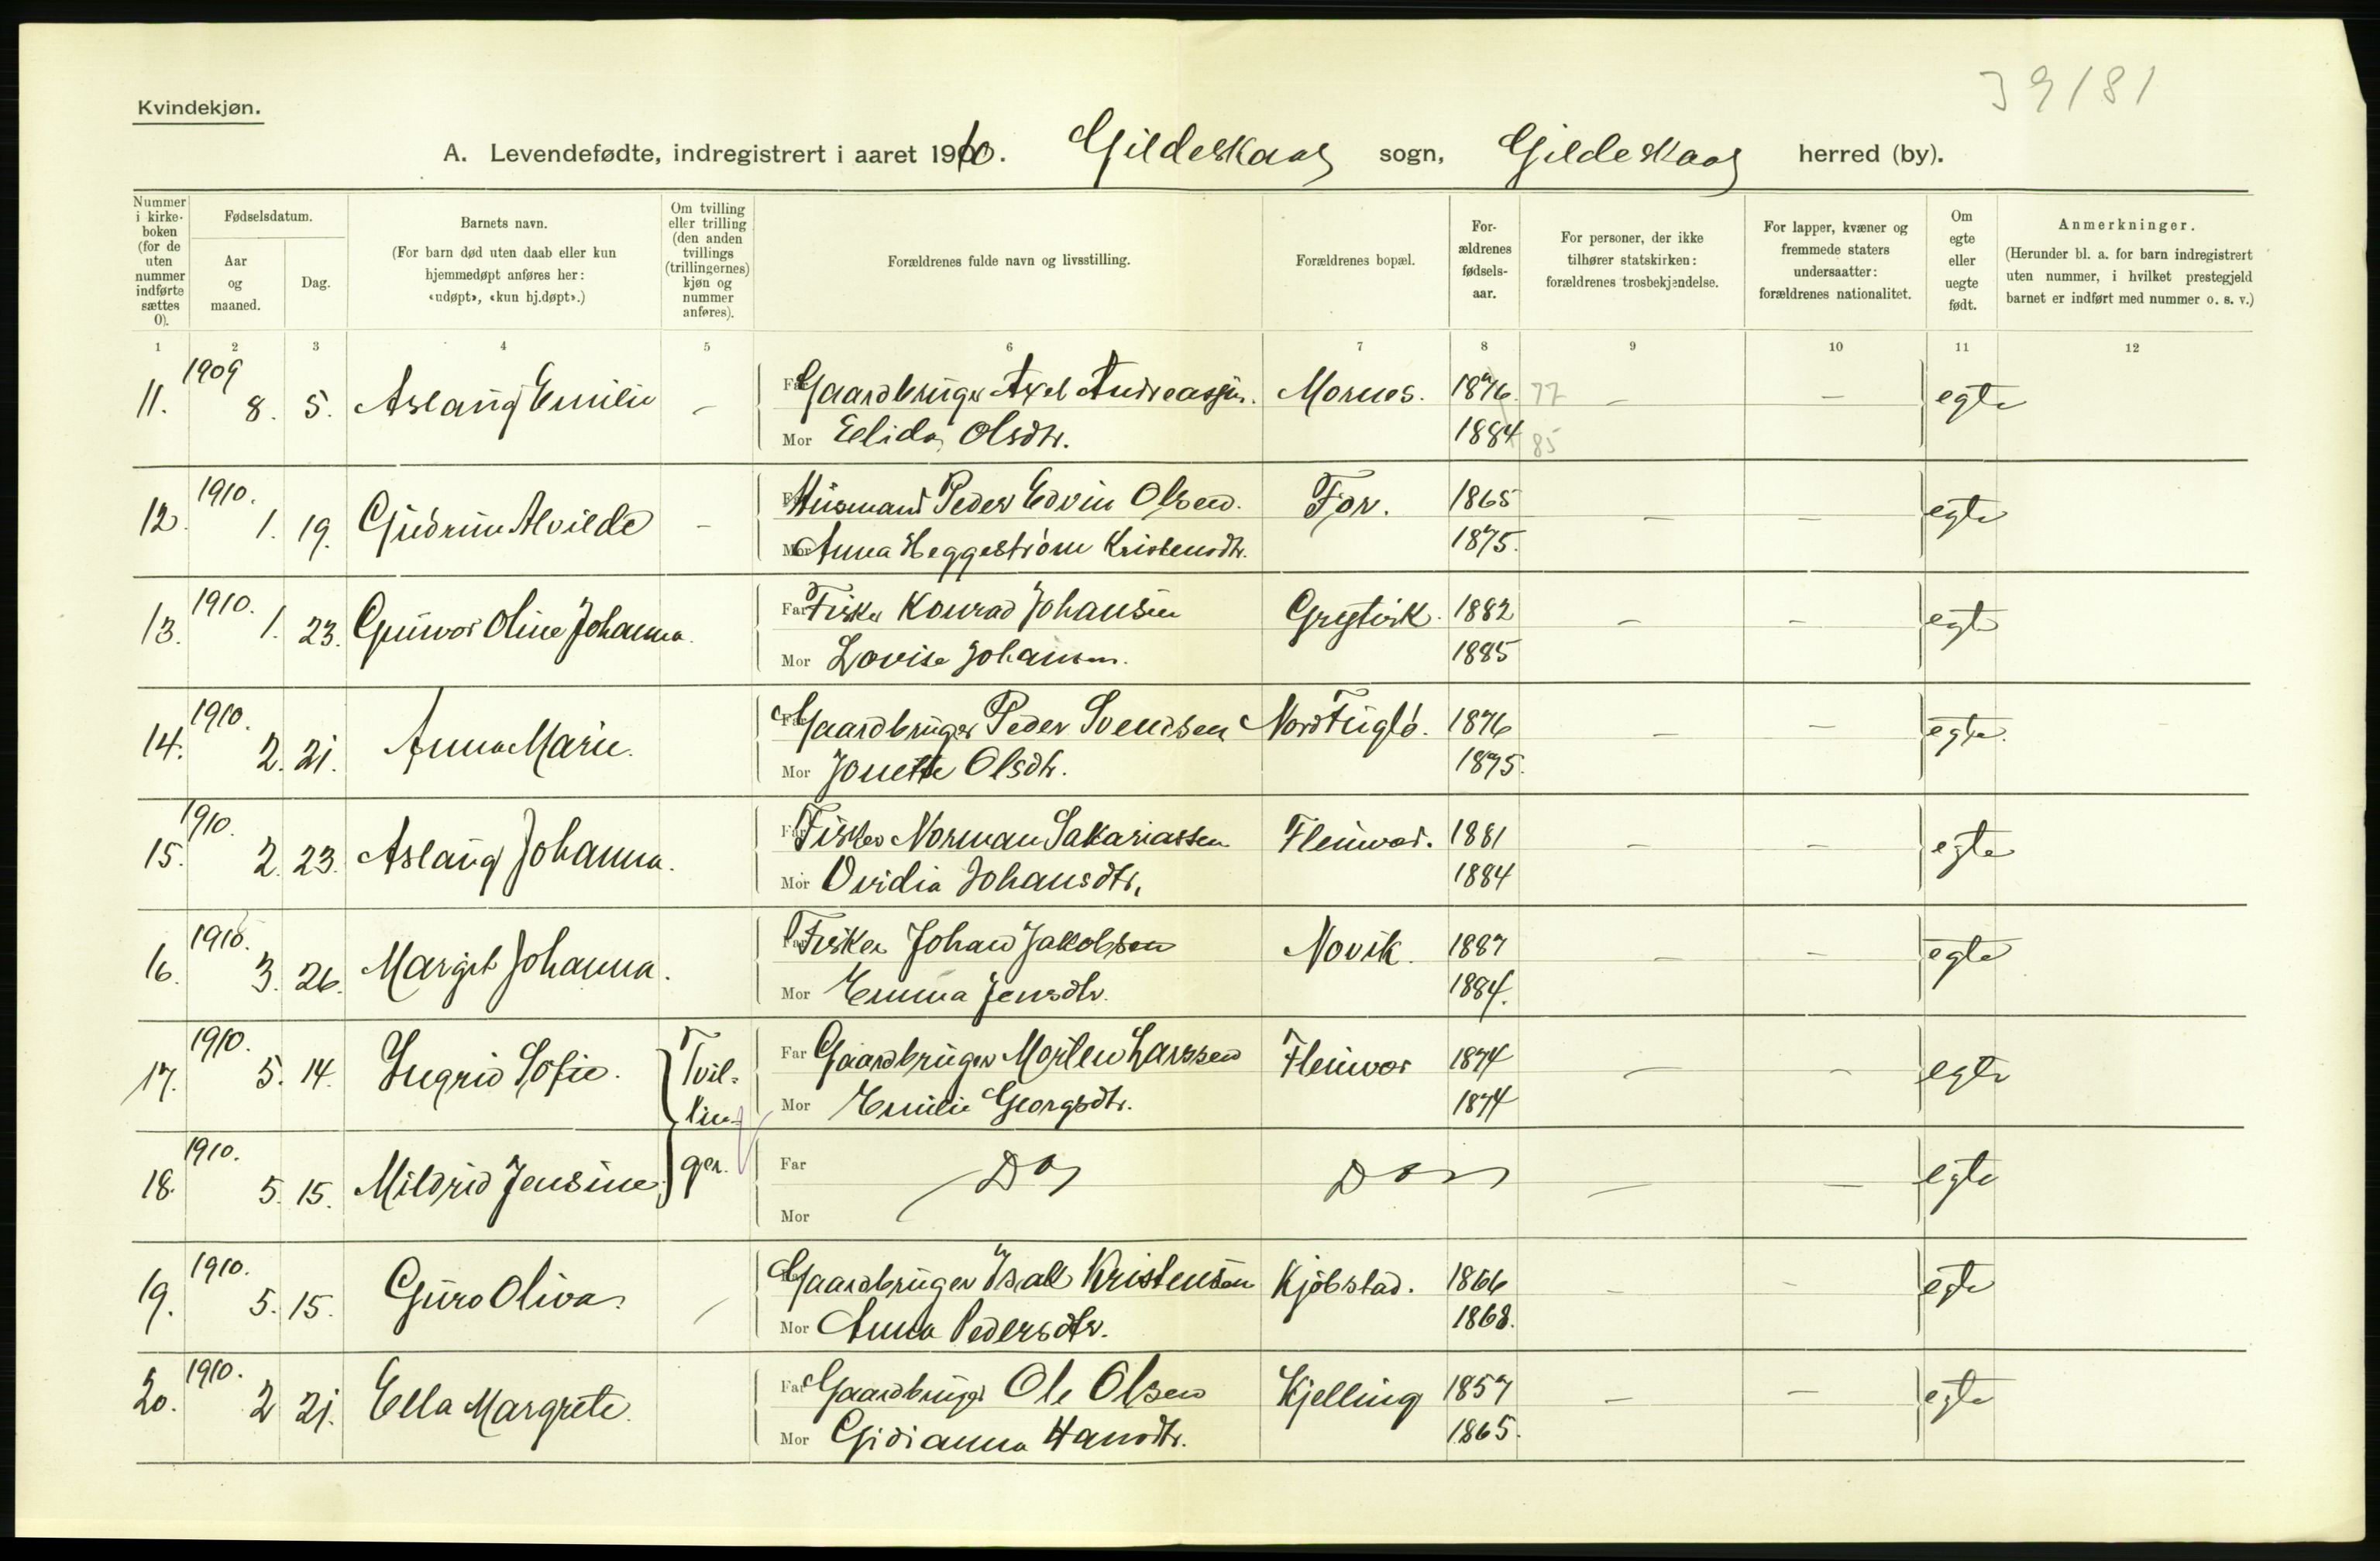 39181
Kvindekjøn.
A. Levendefødte, indregistrert i aaret 1910. Gildeskaal sogn, Gildeskaal herred (by).
Nummer i kirkeboken (for de uten nummer indførte sættes 0).
Fødselsdatum.
Aar og maaned.
Dag.
Barnets navn.
(For barn død uten daab eller kun hjemmedøpt anføres her: «udøpt», «kun hj.døpt».)
Om tvilling eller trilling (den anden tvillings (trillingernes) kjøn og nummer anføres).
Forældrenes fulde navn og livsstilling.
Forældrenes bopæl.
Forældrenes fødselsaar.
For personer, der ikke tilhører statskirken: forældrenes trosbekjendelse.
For lapper, kvæner og fremmede staters undersaatter: forældrenes nationalitet.
Om egte eller uegte født.
Anmerkninger.
(Herunder bl. a. for barn indregistrert uten nummer, i hvilket prestegjeld barnet er indført med nummer o. s. v.)
1 2 3 4 5 6 7 8 9 10 11 12
11. 1909 8. 5. Aslaug Emilie – Far Gaardbruger Axel Andreassen. Mornes. 1876. 77 – – egte
Mor Elida Olsdtr. 1884 85
12. 1910. 1. 19. Gudrun Alvilde – Far Husmand Peder Edvin Olsen. For. 1865 – – egte
Mor Anna Heggestrøm Kristensdtr. 1875.
13. 1910. 1. 23. Gunvor Oline Johanna. Far Fisker Konrad Johansen 1882 – – egte
Mor Lovise Johansen. 1885
14. 1910. 2. 21. Anna Marie. Far Gaardbruger Peder Svendsen Nord Fuglø. 1876 – – egte.
Mor Jonette Olsdtr. 1875.
15. 1910. 2. 23. Aslaug Johanna. Far Fisker Norman Sakariassen Fleinvær. 1881 – – egte
Mor Ovidia Johansdtr. 1884
16. 1910. 3. 26. Margit Johanna. Far Fisker Johan Jakobsen Novik. 1887 – – egte
Mor Emma Jensdtr. 1884.
17. 1910. 5. 14. Ingrid Sofie. Tvillin- Far Gaardbruger Morten Larssen Fleinvær 1874 – – egte
Mor Emilie Georgsdtr. 1874
18. 1910. 5. 15. Mildrid Jensine. ger. Far Do Do – – egte
Mor
19. 1910. 5. 15. Guro Oliva. – Far Gaardbruger Isak Kristensen Kjöbstad. 1866 – – egte
Mor Anna Pedersdtr. 1868.
20. 1910. 2 21. Ella Margrete. Far Gaardbruger Ole Olsen Kjelling 1857 – – egte
Mor Gidianna Hansdtr. 1865.